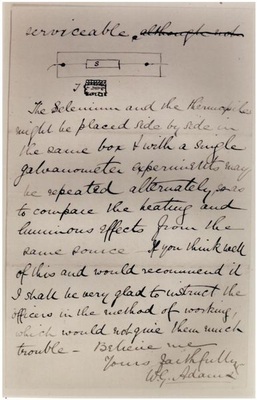 serviceable, although not
S
T
The Selenium and the thermopiles
might be placed side by side in
the same box & with a single
galvanometer experiments may
be repeated alternately so as
to compare the heating and
luminous effects from the
same source If you think well
of this and would recommend it
I shall be very glad to instruct the
officers in the method of working,
which would not give them much
trouble – Believe me
Yours faithfully
W.G. Adams